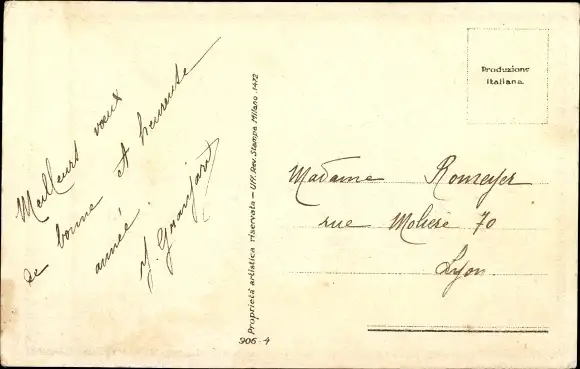 Meilleurs vœux
de bonne et heureuse
année.
Proprietá artistica riservata - Uff. Rev. Stampa Milano - 1472
906-4
Produzione
Italiana.
Madame Romeyer
rue Molière 70
Lyon.